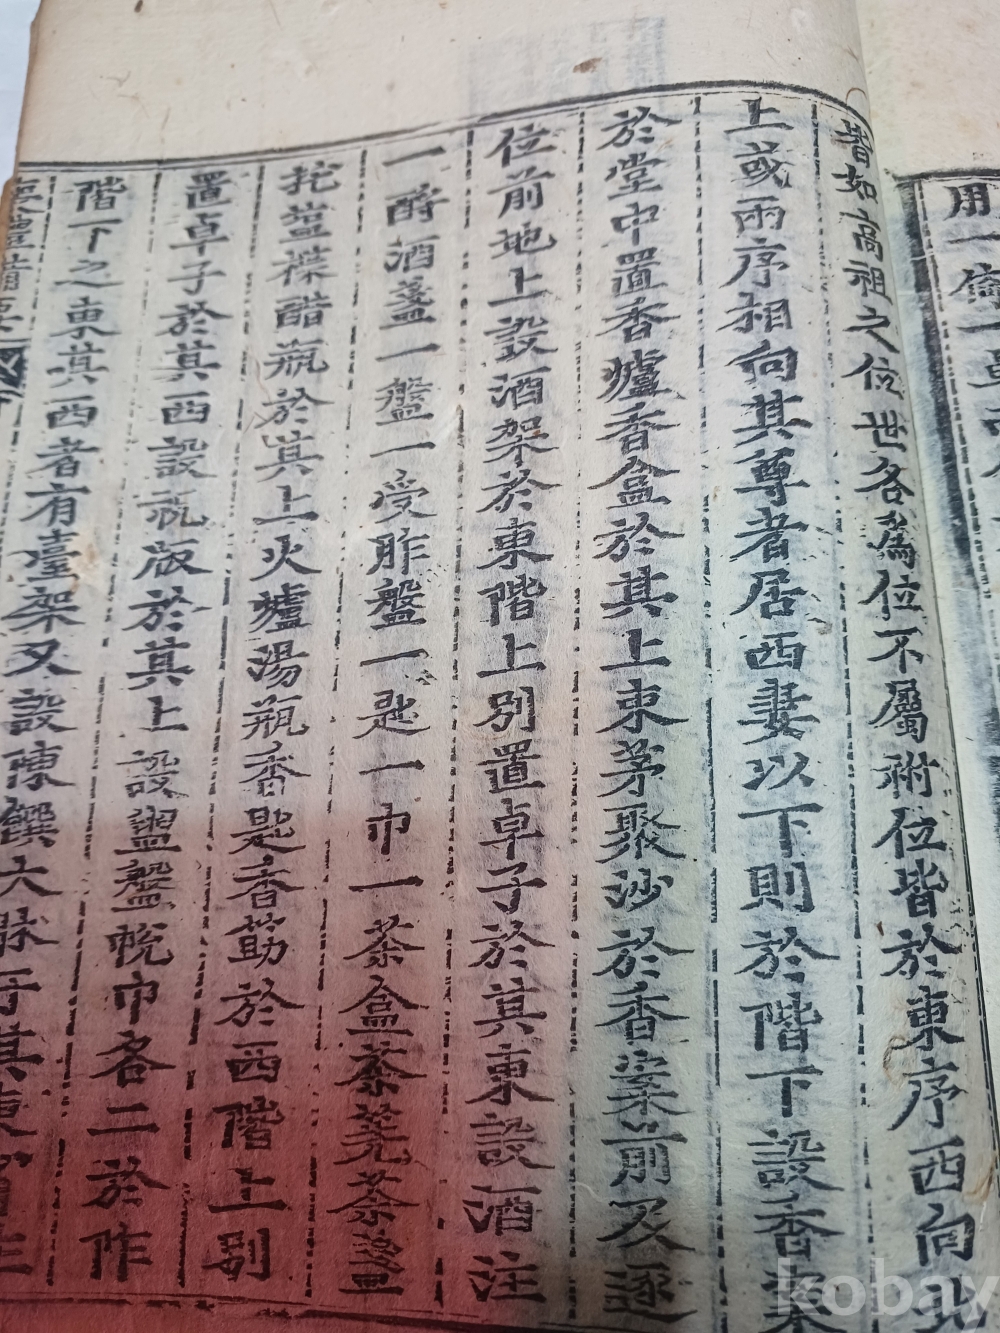 用一倚一卓
皆如高祖之位世各爲位不屬祔位皆於東序西向北
上或兩序相向其尊者居西妻以下則於階下設香案
於堂中置香爐香盒於其上束茅聚沙於香案前及逐
位前地上設酒架於東階上別置卓子於其東設酒注
一酹酒盞一盤一受胙盤一匙一巾一茶盒茶筅茶盞
托盐楪醋瓶於其上火爐湯瓶香匙香筯於西階上別
置卓子於其西設祝版於其上設盥盤帨巾各二於阼
階下之東其西者有臺架又設陳饌大牀于其東
kobay